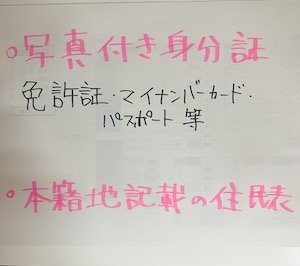 ○写真付き身分証
免許証・マイナンバーカード・
パスポート 等
○本籍地記載の住民表